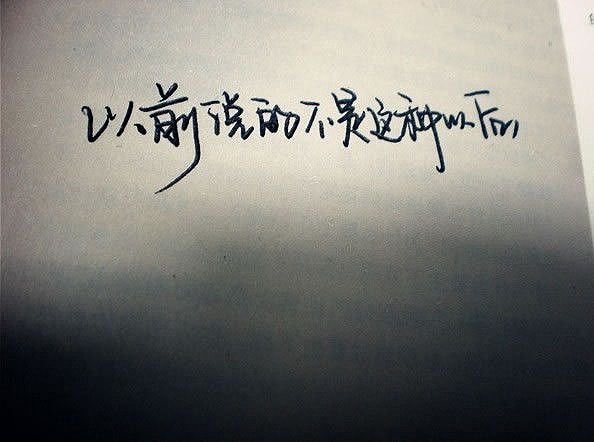 以前说的不是这种以后